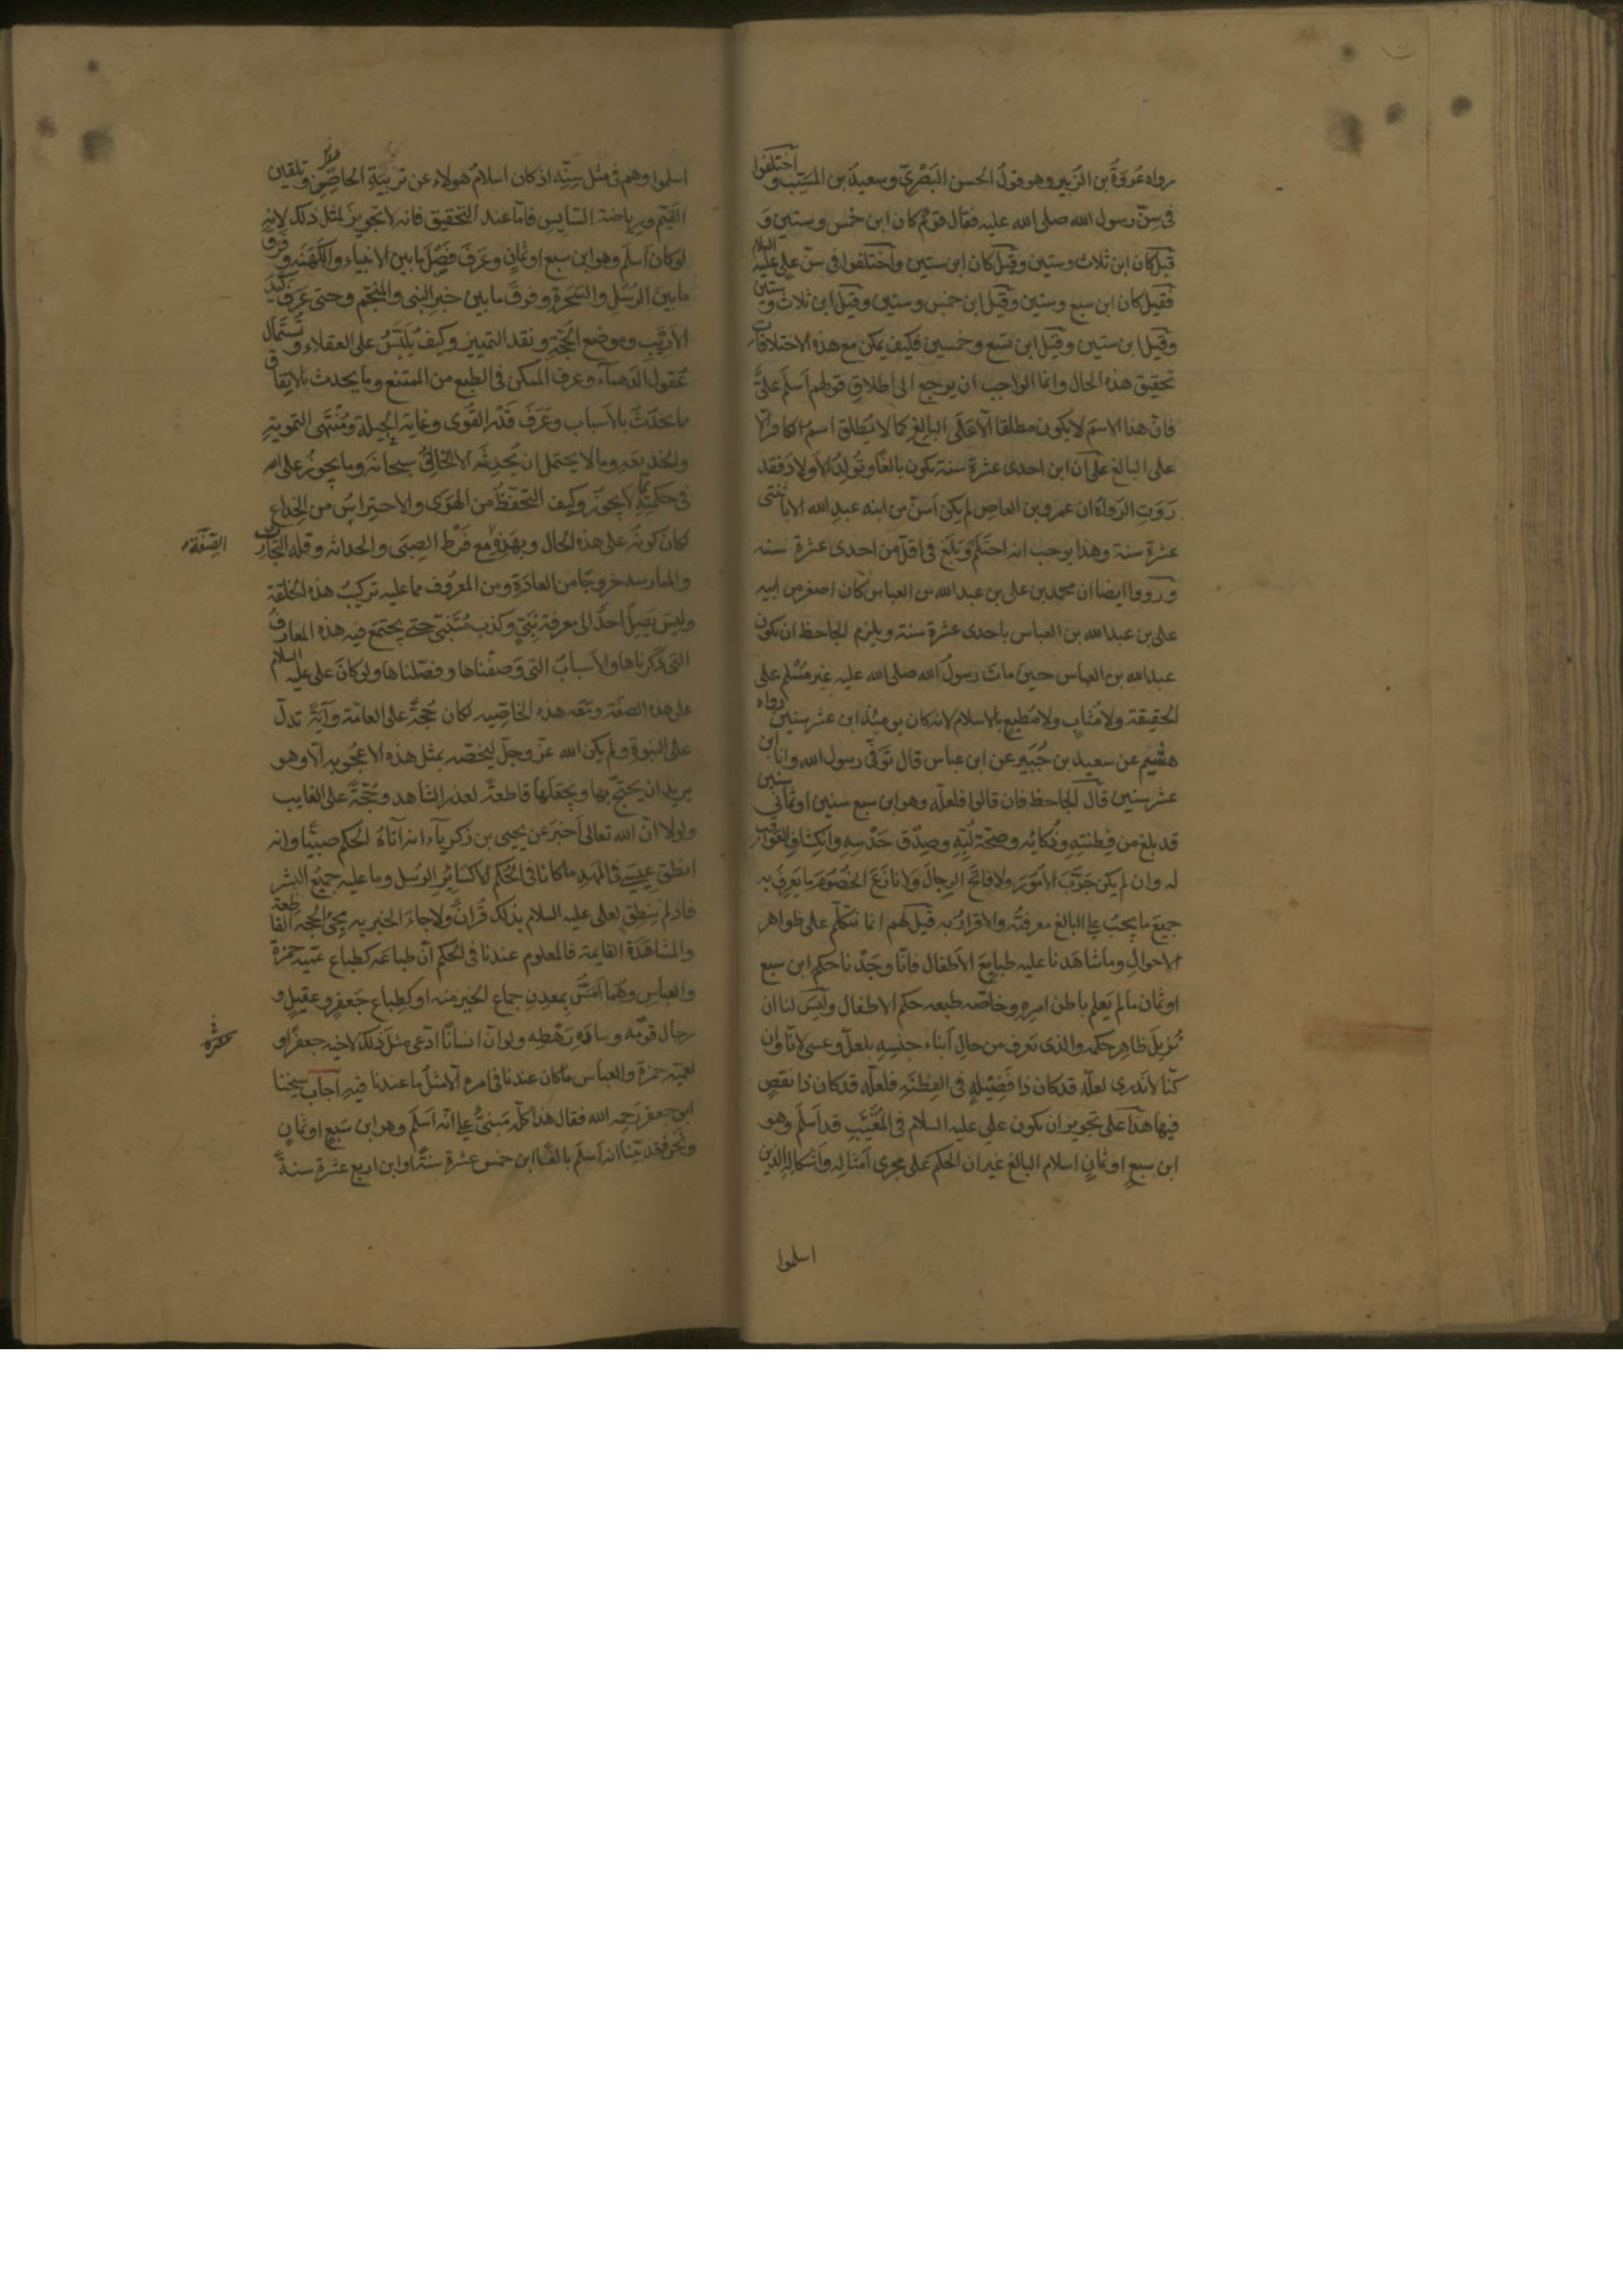 رواه عروة بن الزبير وهو قول الحسن البصري وسعيد بن المسيب واختلفوا
في سن رسول الله صلى الله عليه فقال قوم كان ابن خمس وستين و
قيل كان ابن ثلاث وستين وقيل كان ابن ستين واختلفوا في سن علي عليه السلام
فقيل كان ابن سبع وستين وقيل ابن خمس وستين وقيل ابن ثلاث وستين
وقيل ابن ستين وقيل ابن تسع وخمسين فكيف يمكن مع هذه الاختلافات
تحقيق هذه الحال وانما الواجب ان يرجع الى اطلاق قولهم اسلم علي
فان هذا الاسم لا يكون مطلقا الا على البالغ كما لا يطلق اسم الكافر الا
على البالغ على ان ابن احدى عشرة سنة يكون بالغا ويولد له الاولاد فقد
روت الرواة ان عمرو بن العاص لم يكن اسن من ابنه عبد الله الا باثنتي
عشرة سنة وهذا يوجب انه احتلم وبلغ في اقل من احدى عشرة سنة
ورووا ايضا ان محمد بن علي بن عبد الله بن العباس كان اصغر من ابيه
علي بن عبد الله بن العباس باحدى عشرة سنة ويلزم الجاحظ ان يكون
عبد الله بن العباس حين مات رسول الله صلى الله عليه غير مسلم على
الحقيقة ولا مثاب ولا مطيع بالاسلام لانه كان يومئذ ابن عشر سنين رواه
هشيم عن سعيد بن جبير عن ابن عباس قال توفي رسول الله وانا ابن
عشر سنين قال الجاحظ فان قالوا فلعله وهو ابن سبع سنين او ثماني سنين
قد بلغ من فطنته وذكائه وصحة لبه وصدق حدسه وانكشاف العواقب
له وان لم يكن جرب الامور ولا فاتح الرجال ولا نازع الخصوم ما يعرف به
جميع ما يجب على البالغ معرفته والاقرار به قيل لهم انما نتكلم على ظواهر
الاحوال وما شاهدنا عليه طبايع الاطفال فانا وجدنا حكم ابن سبع
او ثمان ما لم يعلم باطن امره وخاصة طبعه حكم الاطفال وليس لنا ان
نزيل ظاهر حكمه والذي نعرف من حال ابناء جنسه بلعل وعسى لانا وان
كنا لا ندري لعله قد كان ذا فضيلة في الفطنة فلعله قد كان ذا نقص
فيها هذا على تجويز ان يكون علي عليه السلام في المغيب قد اسلم وهو
ابن سبع او ثمان اسلام البالغ غير ان الحكم على مجرى امثاله واشكاله الذين
اسلموا
اسلموا وهم في مثل سنه اذ كان اسلام هولاء عن تربية الحاضن وتلقين
القيم ورياضة السايس فاما عند التحقيق فانه لا تجويز لمثل ذلك لانه
لو كان اسلم وهو ابن سبع او ثمان وعرف فصل ما بين الانبياء والكهنة وفرق
ما بين الرسل والسحرة وفرق ما بين خبر النبي والمنجم وحتى عرف كيد
الاريب وموضع الحجة ونقد التمييز وكيف يلبس على العقلاء وتستمال
عقول الدهماء وعرف الممكن في الطبع من الممتنع وما يحدث بالاتفاق
ما يحدث بالاسباب وعرف قدر القوى وغاية الحيلة ومنتهى التمويه
والخديعة وما لا يحتمل ان يحدثه الا الخالق سبحانه وما يجوز على الله
في حكمته مما لا يجوز وكيف التحفظ من الهوى والاحتراس من الخداع
لكان كونه على هذه الحال وبهذه مع فرط الصبى والحداثة وقلة التجارب
الصفة
والممارسة خروجا من العادة ومن المعروف مما عليه تركيب هذه الخلقة
وليس يصل احد الى معرفة نبي وكذب متنبي حتى يجتمع فيه هذه المعارف
التي ذكرناها والاسباب التي وصفناها وفصلناها ولو كان علي عليه السلام
على هذه الصفة ومعه هذه الخاصية لكان حجة على العامة وآية تدل
على النبوة ولم يكن الله عز وجل ليخصه بمثل هذه الاعجوبه الا وهو
يريد ان يحتج بها ويجعلها قاطعة لعذر الشاهد وحجة على الغايب
ولولا ان الله تعالى اخبر عن يحيى بن زكرياء انه آتاه الحكم صبيا وانه
انطق عيسى في المهد ما كانا في الحكم الا كسائر الرسل وما عليه جميع البشر
فاذ لم ينطق لعلي عليه السلام بذلك قران ولا جاء الخبر به مجئ الحجة القاطعة
والمشاهدة القايمة فالمعلوم عندنا في الحكم ان طباعه كطباع عميه حمزة
والعباس وهما امس بمعدن جماع الخير منه او كطباع جعفر وعقيل و
رجال قومه وسادة رهطه ولو ان انسانا ادعى مثل ذلك لاخيه جعفر او
لعميه حمزة والعباس ما كان عندنا في امره الا مثل ما عندنا فيه اجاب شيخنا
ابو جعفر رحمه الله فقال هذا كله مبني على انه اسلم وهو ابن سبع او ثمان
ونحن فقد بينا انه اسلم بالغا ابن خمس عشرة سنة او ابن اربع عشرة سنة